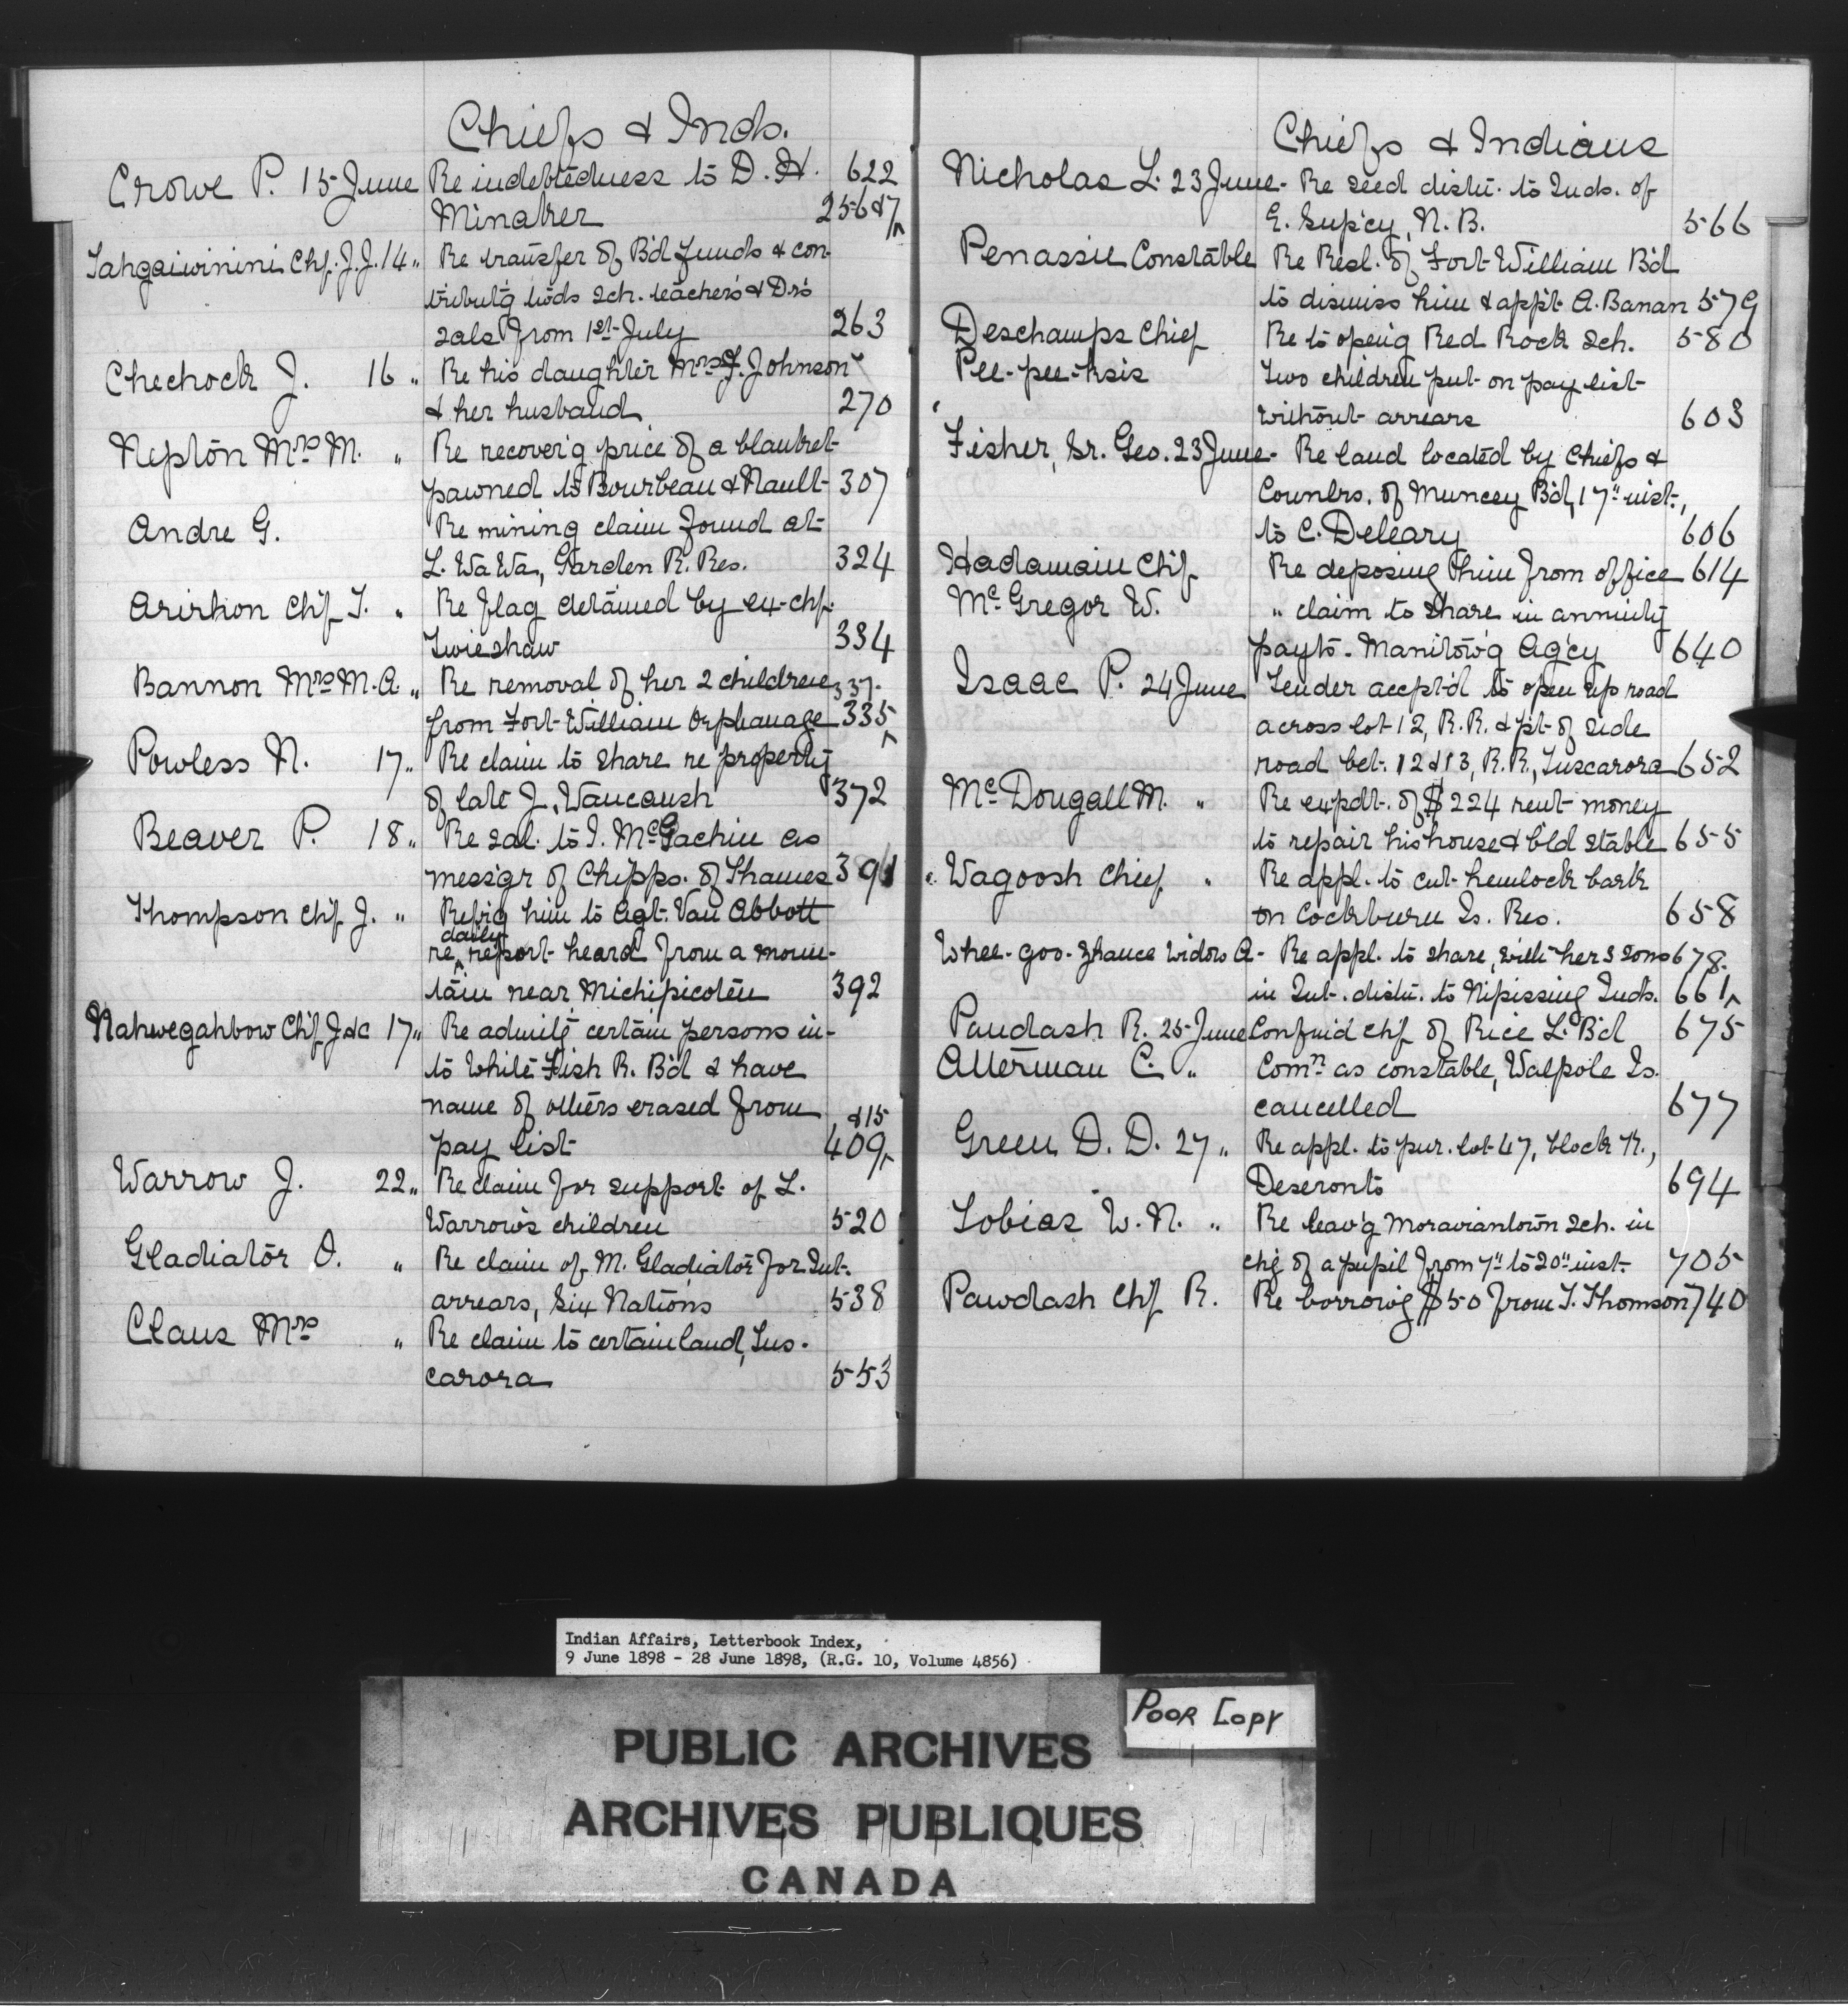 Chiefs & Inds.
Crowe P. 15 June Re indebtedness to D. H. 622
Minaker 256&7
Tahgaiwinini Chf. J.J. 14 " Re transfer of B'd funds & con-
tribut'g tōds sch. teacher's & Dr's
sals from 1st July 263
Chechock J. 16 " Re his daughter Mrs F. Johnson
& her husband 270
Nepton Mrs M. " Re recover'g price of a blanket
pawned to Bourbeau & Nault 307
Andre G. Re mining claim found at
L. Wa Wa, Garden R. Res. 324
Arirhon Chf T. " Re flag detained by ex-chf.
Twieshaw 334
Bannon Mrs M. A. " Re removal of her 2 children 337.
from Fort William Orphanage 335
Powless N. 17 " Re claim to share re property
of late J. Waucaush 372
Beaver P. 18 " Re sal. to I. McGachin as
mess'gr of Chipps. of Thames 391
Thompson Chf J. " Refr'g him to Agt. Van Abbott
daily
re report heard from a moun-
tain near Michipicoten 392
Nahwegahbow Chf J. &c 17 " Re admit'g certain persons in-
to White Fish R. B'd & have
name of others erased from &15
pay list 409
Warrow J. 22 " Re claim for support of L.
Warrow's children 520
Gladiator O. " Re claim of M. Gladiator for Int.
arrears, Six Nations 538
Claus Mrs " Re claim to certain land, Tus-
carora 553
Chiefs & Indians
Nicholas L. 23 June - Re seed distn. to Inds. of
E. Sup'cy, N. B. 566
Penassie Constable Re Resl. of Fort William B'd
to dismiss him & app't A. Banan 579
Deschamps Chief Re to open'g Red Rock sch. 580
Pee-pee-ksis Two children put on pay list
without arrears 603
Fisher, Sr. Geo. 23 June - Re land located by Chiefs &
Counlrs. of Muncey B'd, 17" inst.,
to C. Deleary 606
Hadamain Chf Re deposing him from office 614
McGregor W. " claim to share in annuity
payts. Manitow'g Ag'cy 640
Isaac P. 24 June Tender accpt'd to open up road
across lot 12, R. R. & p't of side
road bet. 12 & 13, R. R., Tuscarora 652
McDougall M. " Re expdt. of $224 rent money
to repair his house & b'ld stable 655
Wagoosh Chief " Re appl. to cut hemlock bark
on Cockburn Is. Res. 658
Whee-goo-zhance Widow A - Re appl. to share, with her 3 sons 678.
in Int. distn. to Nipissing Inds. 661
Paudash R. 25 June Confm'd chf of Rice L. B'd 675
Alterman C. " Comn as constable, Walpole Is.
cancelled 677
Green D. D. 27 " Re appl. to pur. lot 47, block K.,
Deseronto 694
Tobias W. N. " Re leav'g Moraviantown sch. in
ch'g of a pupil from 7" to 20" inst. 705
Pawdash Chf R. Re borrow'g $50 from T. Thomson 740
Indian Affairs, Letterbook Index,
9 June 1898 - 28 June 1898, (R.G. 10, Volume 4856)
POOR COPY
PUBLIC ARCHIVES
ARCHIVES PUBLIQUES
CANADA